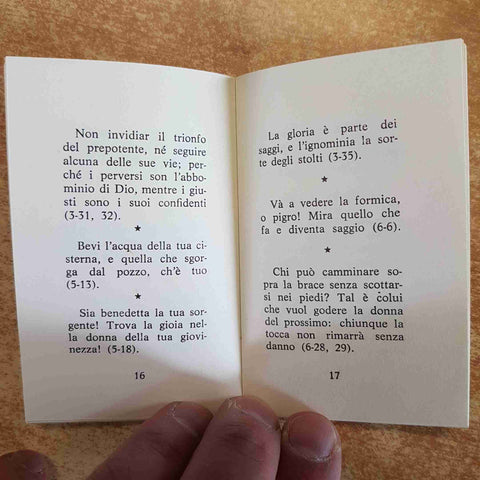 Non invidiar il trionfo
del prepotente, né seguire
alcuna delle sue vie; per-
ché i perversi son l'abbo-
minio di Dio, mentre i giu-
sti sono i suoi confidenti
(3-31, 32).
★
Bevi l'acqua della tua ci-
sterna, e quella che sgor-
ga dal pozzo, ch'è tuo
(5-13).
★
Sia benedetta la tua sor-
gente! Trova la gioia nel-
la donna della tua giovi-
nezza! (5-18).
16
La gloria è parte dei
saggi, e l'ignominia la sor-
te degli stolti (3-35).
★
Và a vedere la formica,
o pigro! Mira quello che
fa e diventa saggio (6-6).
★
Chi può camminare so-
pra la brace senza scottar-
si nei piedi? Tal è colui
che vuol godere la donna
del prossimo: chiunque la
tocca non rimarrà senza
danno (6-28, 29).
17